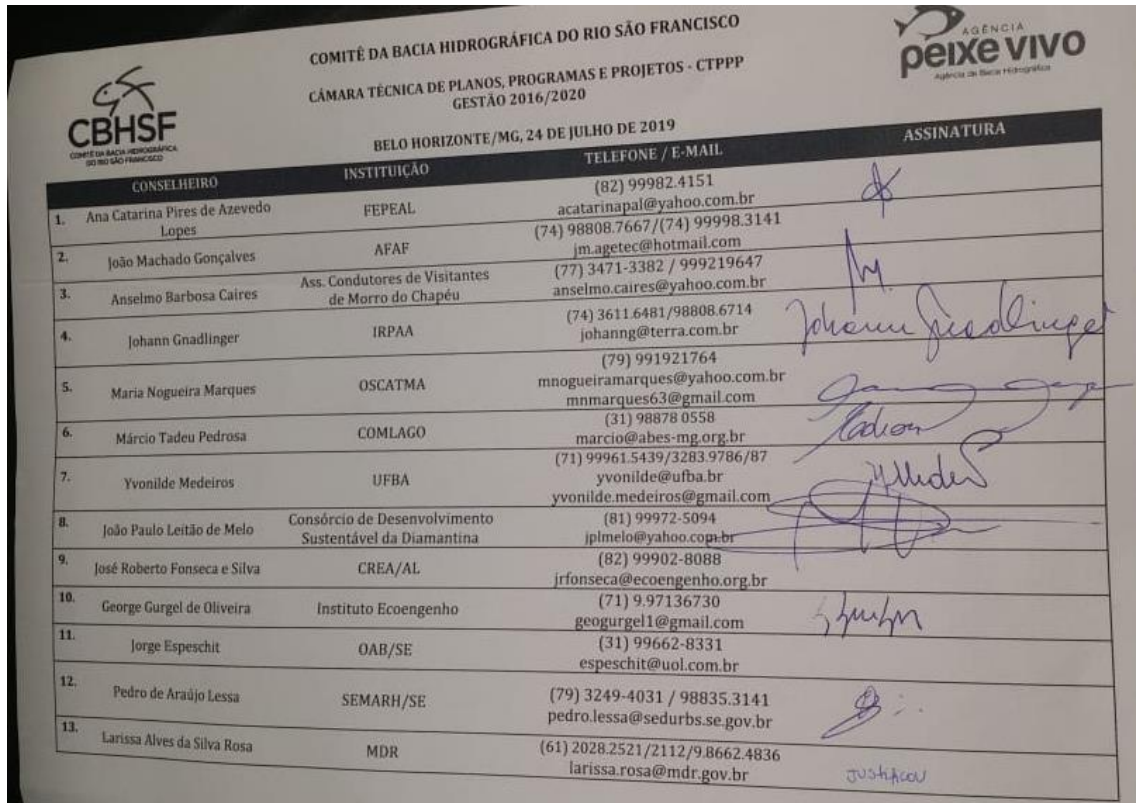 COMITÊ DA BACIA HIDROGRÁFICA DO RIO SÃO FRANCISCO
CÂMARA TÉCNICA DE PLANOS, PROGRAMAS E PROJETOS - CTPPP
GESTÃO 2016/2020
BELO HORIZONTE/MG, 24 DE JULHO DE 2019
CBHSF
COMITÊ DA BACIA HIDROGRÁFICA
DO RIO SÃO FRANCISCO
AGÊNCIA
peixe vivo
Agência de Bacia Hidrográfica
CONSELHEIRO INSTITUIÇÃO TELEFONE / E-MAIL ASSINATURA
1. Ana Catarina Pires de Azevedo
Lopes
FEPEAL
(82) 99982.4151
acatarinapal@yahoo.com.br
2. João Machado Gonçalves
AFAF
(74) 98808.7667/(74) 99998.3141
jm.agetec@hotmail.com
3. Anselmo Barbosa Caires
Ass. Condutores de Visitantes
de Morro do Chapéu
(77) 3471-3382 / 999219647
anselmo.caires@yahoo.com.br
4. Johann Gnadlinger
IRPAA
(74) 3611.6481/98808.6714
johanng@terra.com.br
Johann Gnadlinger
5. Maria Nogueira Marques
OSCATMA
(79) 991921764
mnogueiramarques@yahoo.com.br
mnmarques63@gmail.com
6. Márcio Tadeu Pedrosa
COMLAGO
(31) 98878 0558
marcio@abes-mg.org.br
7. Yvonilde Medeiros
UFBA
(71) 99961.5439/3283.9786/87
yvonilde@ufba.br
yvonilde.medeiros@gmail.com
8. João Paulo Leitão de Melo
Consórcio de Desenvolvimento
Sustentável da Diamantina
(81) 99972-5094
jplmelo@yahoo.com.br
9. José Roberto Fonseca e Silva
CREA/AL
(82) 99902-8088
jrfonseca@ecoengenho.org.br
10. George Gurgel de Oliveira
Instituto Ecoengenho
(71) 9.97136730
geogurgel1@gmail.com
11. Jorge Espeschit
OAB/SE
(31) 99662-8331
espeschit@uol.com.br
12. Pedro de Araújo Lessa
SEMARH/SE
(79) 3249-4031 / 98835.3141
pedro.lessa@sedurbs.se.gov.br
13. Larissa Alves da Silva Rosa
MDR
(61) 2028.2521/2112/9.8662.4836
larissa.rosa@mdr.gov.br
JUSTIFICOU